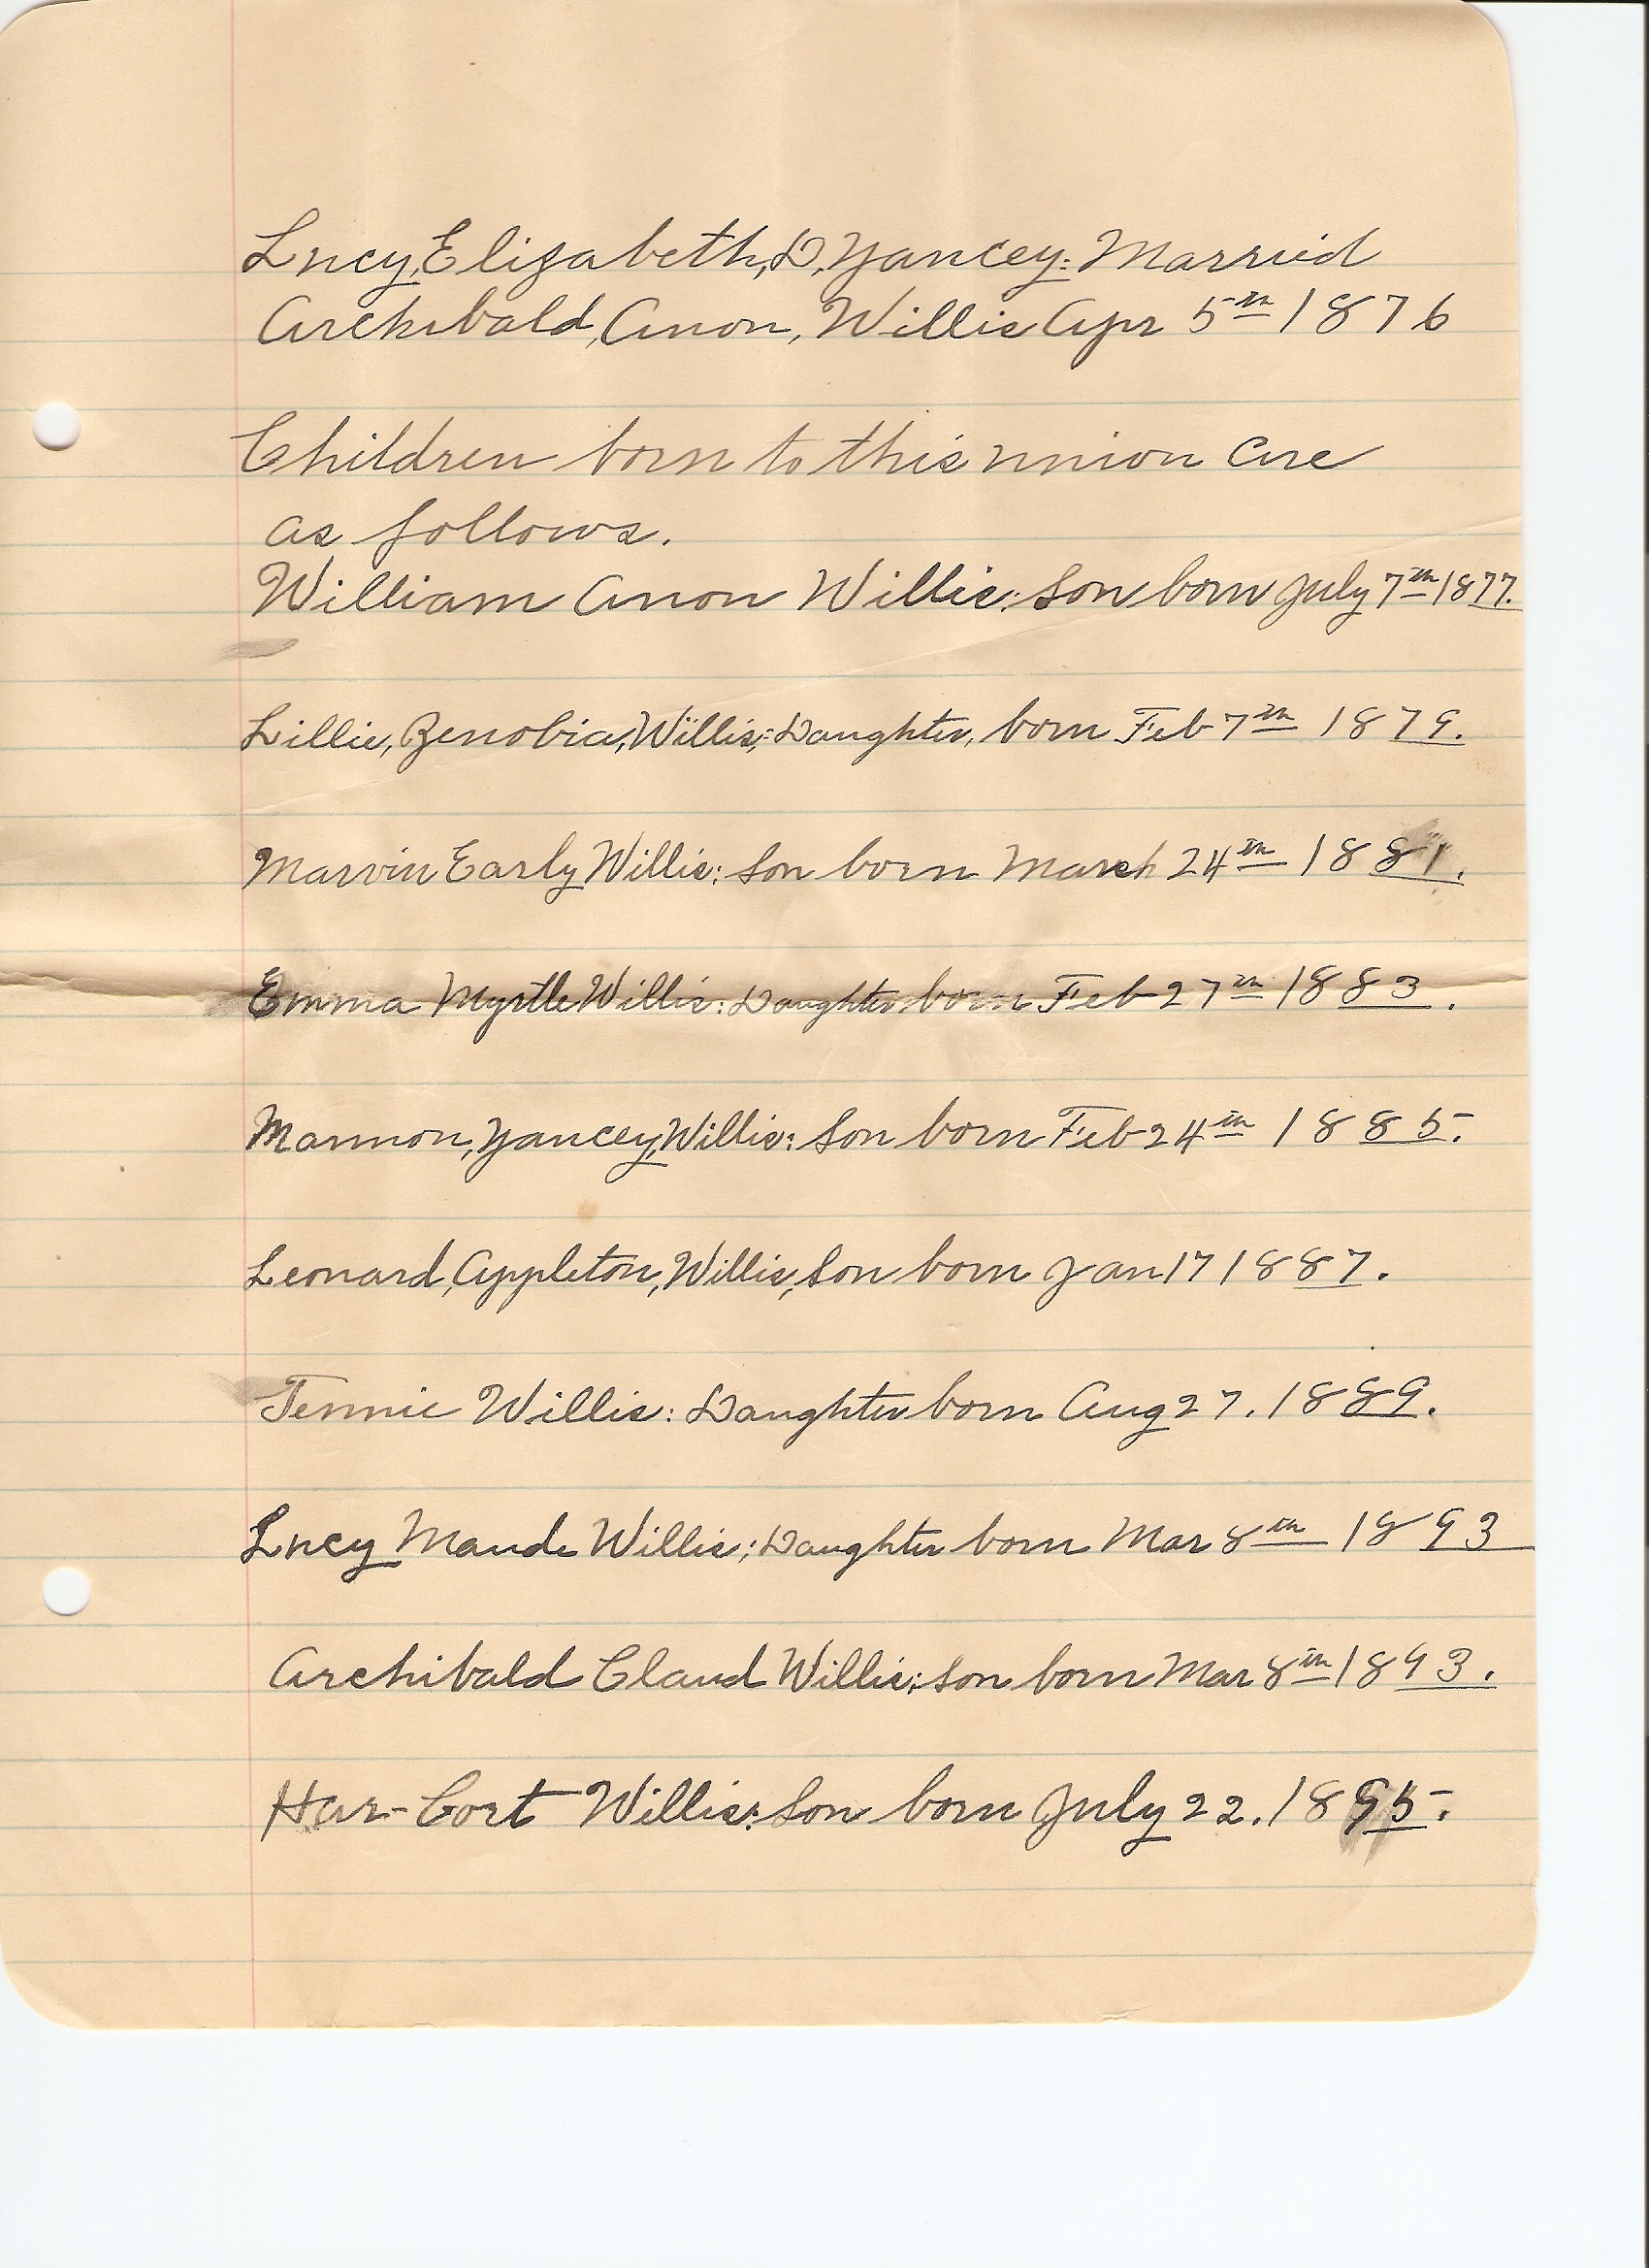 Lucy, Elizabeth, D, Yancey: Married
Archibald, Anon, Willis Apr 5th 1876
Children born to this union are
as follows.
William Anon Willis: Son born July 7th 1877.
Lillie, Zenobia, Willis,: Daughter, born Feb 7th 1879.
Marvin Early Willis: Son born March 24th 1881.
Emma Myrtle Willis: Daughter born Feb 27th 1883.
Mannon, Yancey, Willis: Son born Feb 24th 1885.
Leonard, Appleton, Willis, Son born Jan 17 1887.
Jennie Willis: Daughter born Aug 27. 1889.
Lucy Maude Willis; Daughter born Mar 8th 1893
Archibald Claud Willis: Son born Mar 8th 1893.
Har-Cort Willis: Son born July 22. 1895.